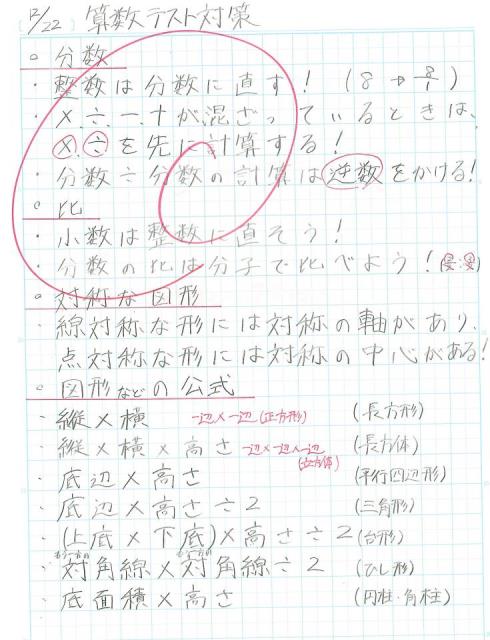 12/22 算数テスト対策
○分数
・整数は分数に直す！ (8→8/1)
・×÷－＋が混ざっているときは、
×、÷を先に計算する！
・分数÷分数の計算は逆数をかける！
○比
・小数は整数に直そう！
・分数の比は分子で比べよう！
○対称な図形
・線対称な形には対称の軸があり、
点対称な形には対称の中心がある！
○図形などの公式
・縦×横 一辺×一辺(正方形) (長方形)
・縦×横×高さ 一辺×一辺×一辺(立方体) (長方体)
・底辺×高さ (平行四辺形)
・底辺×高さ÷2 (三角形)
・(上底×下底)×高さ÷2 (台形)
・対角線×対角線÷2 (ひし形)
・底面積×高さ (円柱・角柱)